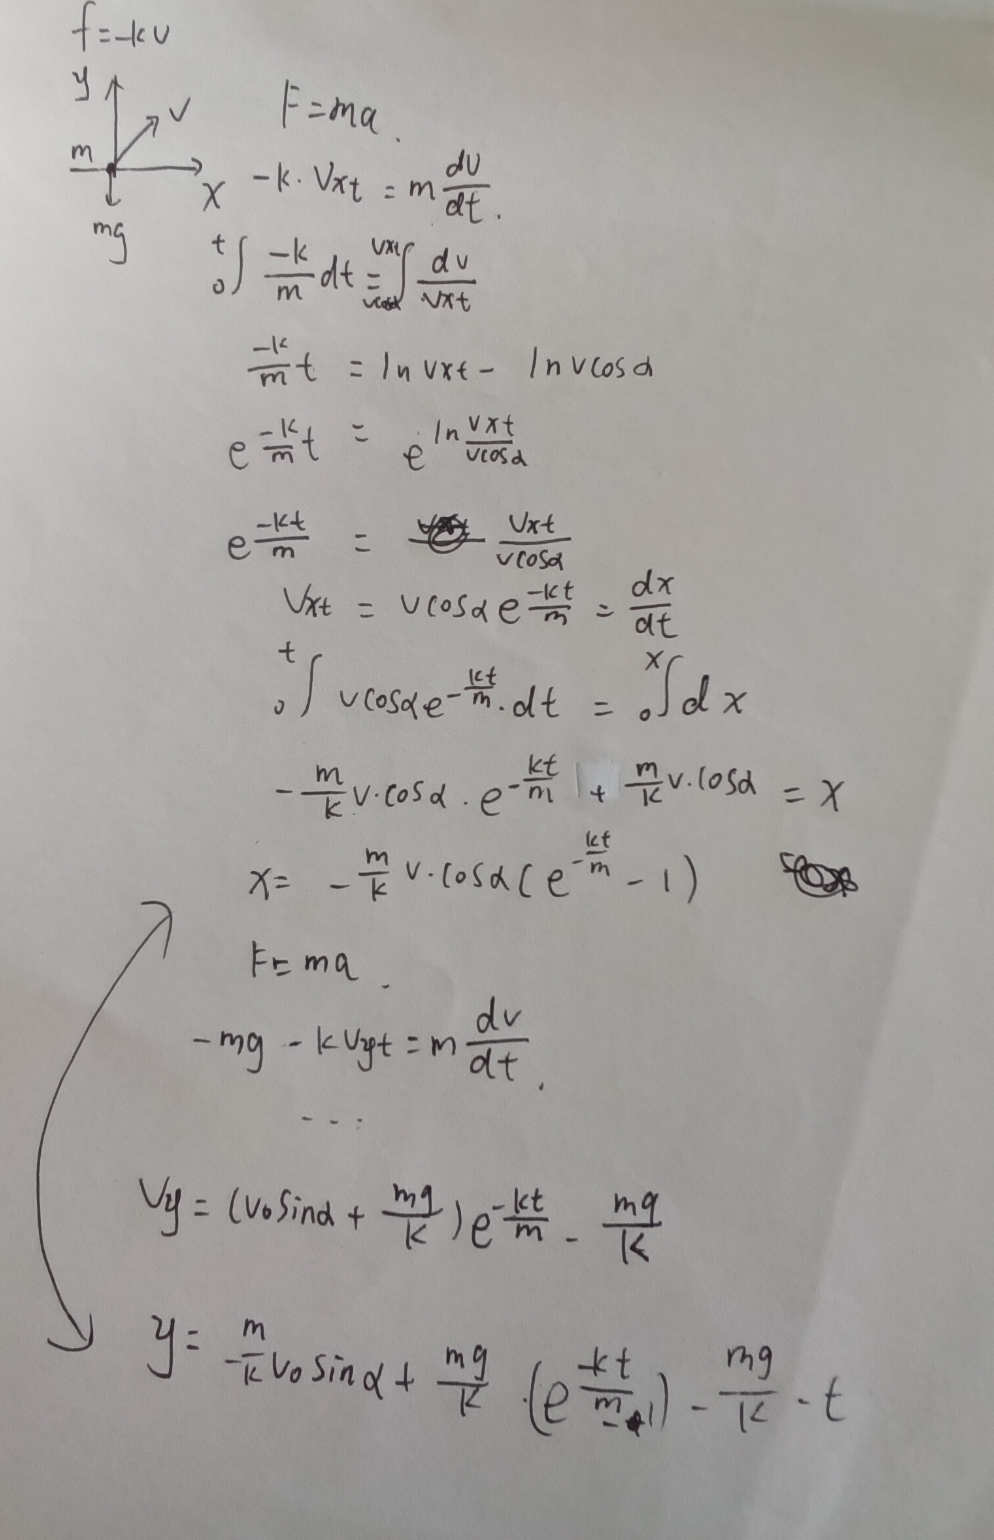 f=-kv
y
v
F=ma.
m
x
-k·Vxt = m dv/dt.
mg
t 0∫ -k/m dt = vxt vcosα∫ dv/vxt
-k/m t = ln vxt - ln vcosα
e -k/m t = e ln vxt/vcosα
e -kt/m = Vxt/vcosα
Vxt = vcosα e -kt/m = dx/dt
t 0∫ vcosα e -kt/m · dt = x 0∫ dx
- m/k v·cosα · e -kt/m + m/k v·cosα = x
x= - m/k v·cosα (e -kt/m - 1)
F=ma.
-mg - kVyt = m dv/dt.
...
Vy = (v₀sinα + mg/k) e -kt/m - mg/k
y = -m/k v₀ sinα + mg/k ·(e -kt/m -1) - mg/k · t